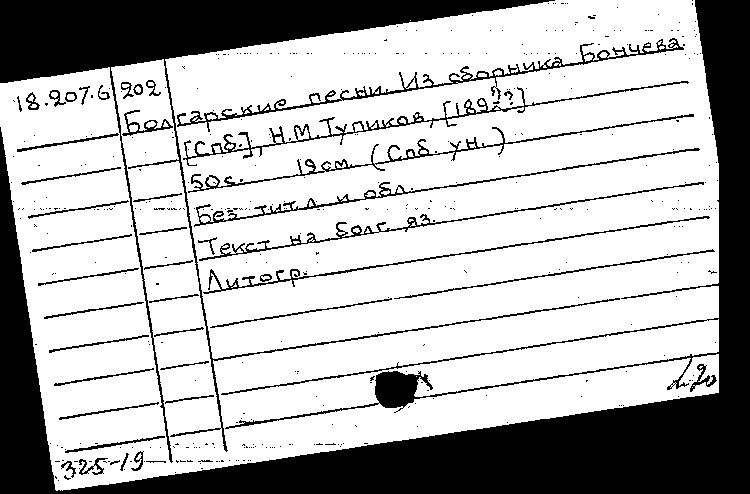 18.207.6 202
Болгарские песни. Из сборника Бончева
[Спб.], Н.М. Тупиков, [189??].
50с. 19см. (Спб. ун.)
Без тит. л. и обл.
Текст на болг. яз.
Литогр.
325-19